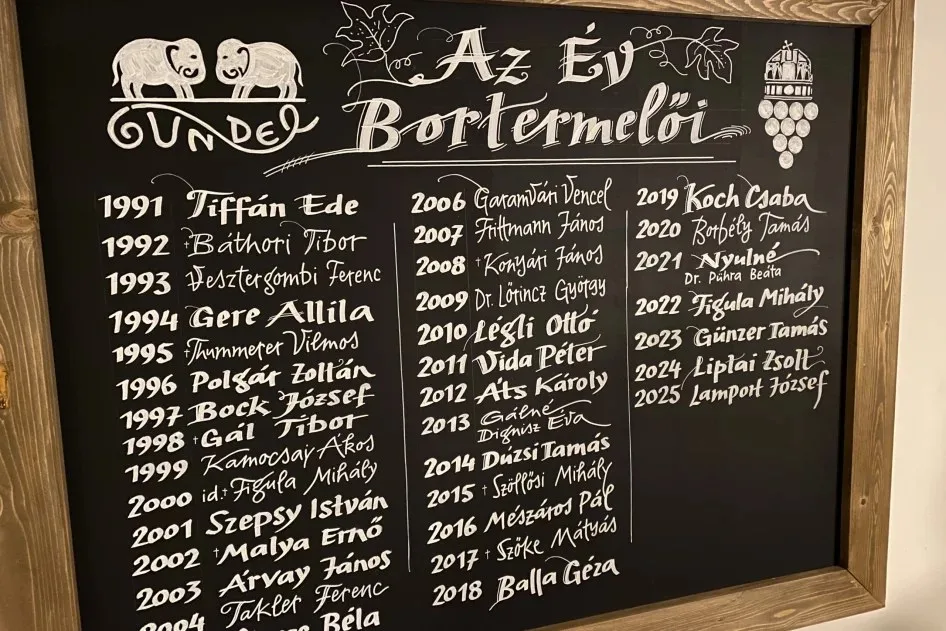 GUNDEL
Az Év
Bortermelői
1991 Tiffán Ede
1992 †Báthori Tibor
1993 Vesztergombi Ferenc
1994 Gere Attila
1995 †Thummerer Vilmos
1996 Polgár Zoltán
1997 Bock József
1998 †Gál Tibor
1999 Kamocsay Ákos
2000 id.†Figula Mihály
2001 Szepsy István
2002 †Malya Ernő
2003 Árvay János
2004 Takler Ferenc
Béla
2006 Garamvári Vencel
2007 Frittmann János
2008 †Konyári János
2009 Dr. Lőrincz György
2010 Légli Ottó
2011 Vida Péter
2012 Áts Károly
2013 Gálné
Dignisz Éva
2014 Dúzsi Tamás
2015 †Szöllősi Mihály
2016 Mészáros Pál
2017 †Szőke Mátyás
2018 Balla Géza
2019 Koch Csaba
2020 Borbély Tamás
2021 Nyulné
Dr. Pühra Beáta
2022 Figula Mihály
2023 Günzer Tamás
2024 Liptai Zsolt
2025 Lamport József